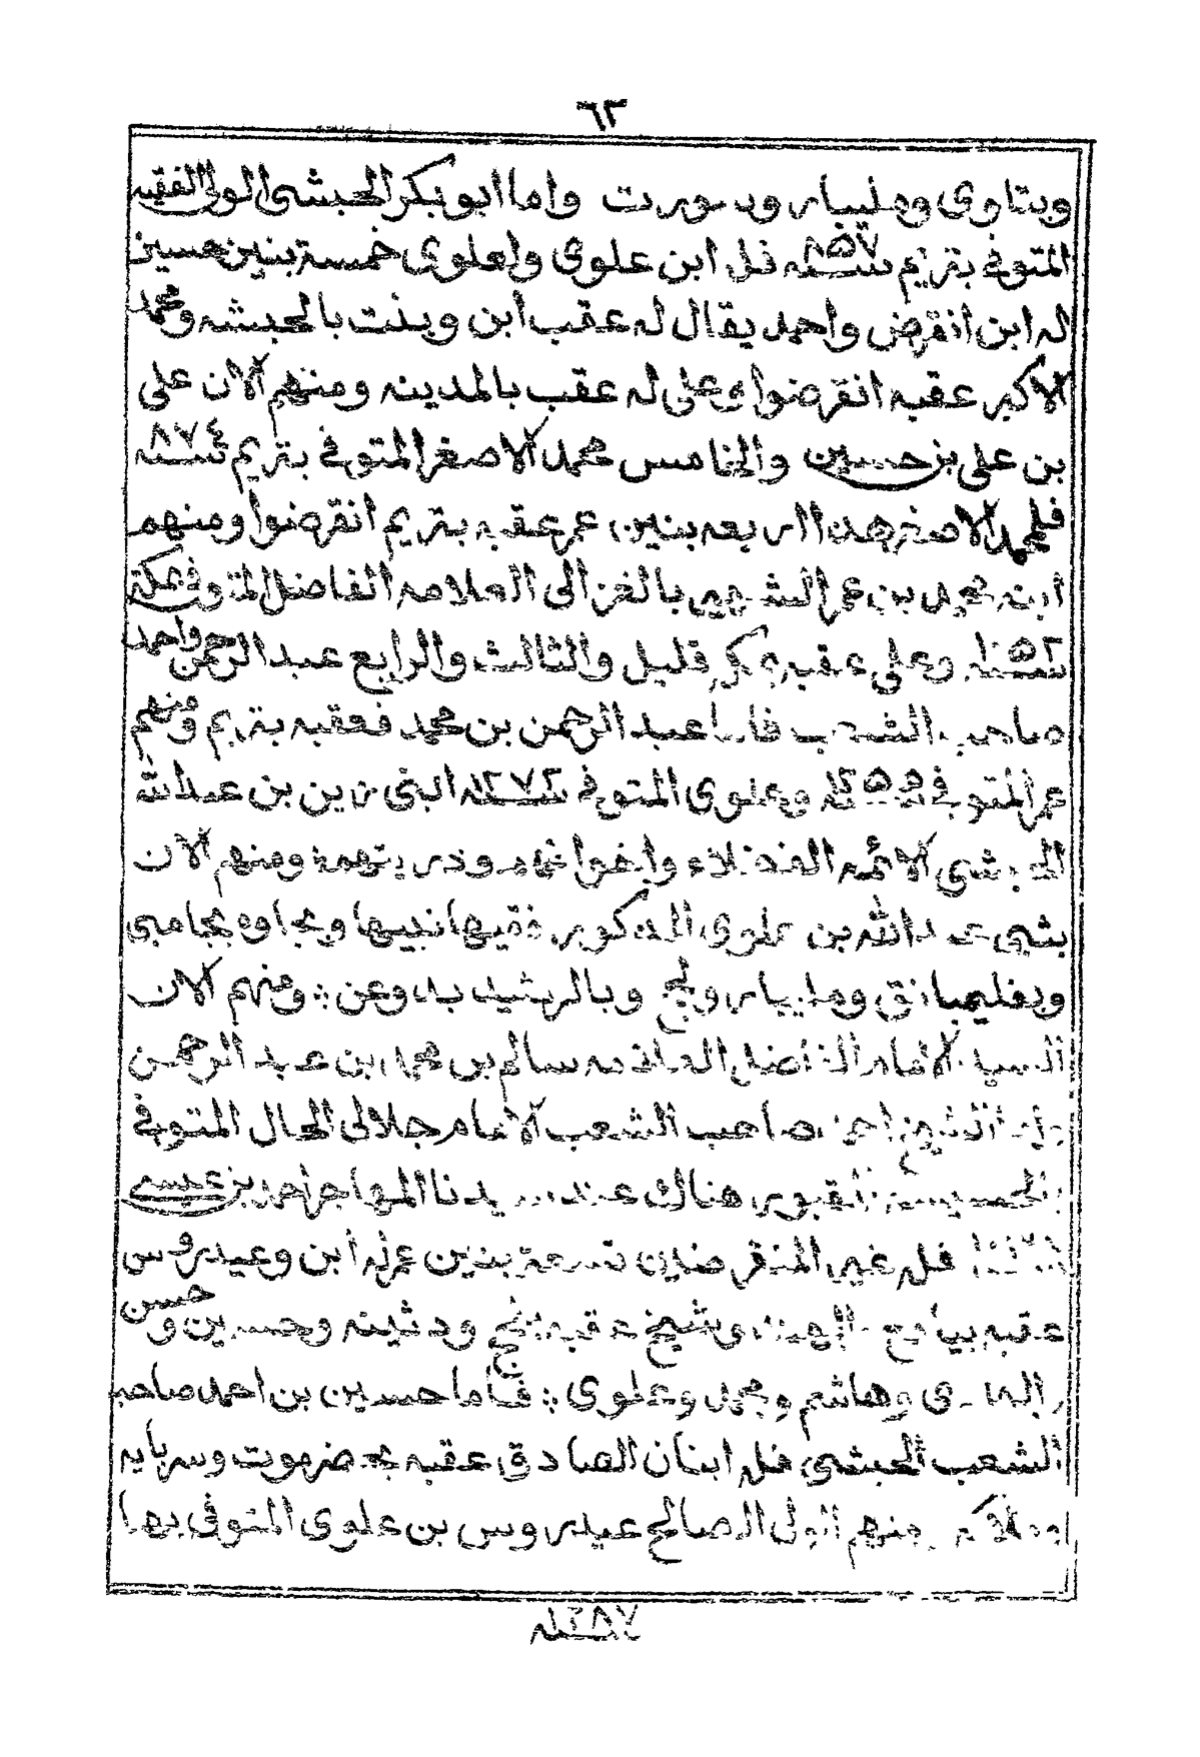 ٦٣
وبتاوى ومليبار وبسورت واما ابو بكر الحبشى الولى الفقيه
المتوفى بتريم سنه ٨٥٧ فله ابن علوى ولعلوى خمسة بنين حسين
له ابن انقرض واحمد يقال له عقب ابن وبنت بالحبشه ومحمد
الاكبر عقبه انقرضوا وعلى له عقب بالمدينه ومنهم الان على
بن على بن حسين والخامس محمد الاصغر المتوفى بتريم سنه ٨٧٤
فلمحمد الاصغر هذا اربعه بنين عمر عقبه بتريم انقرضوا ومنهم
ابنه محمد بن عمر الشهير بالغزالى العلامه الفاضل المتوفى بمكة
سنه ١٠٥٢ وعلى عقبه بمكه قليل والثالث والرابع عبد الرحمن واحمد
صاحب الشعب فاما عبد الرحمن بن محمد فعقبه بتريم ومنهم
عمر المتوفى وعلوى المتوفى سنه ١٢٧٢ ابنى زين بن عبد الله
الحبشى الائمه الفضلاء واخوانهم وذريتهم ومنهم الان
بشبى عبد الله بن علوى المذكور فقيها نبيها وبجاوه بجامبى
وبفليمبانق ومليبار ولحج وبالرشيد به وعن ∴ ومنهم الان
السيد الامام الفاضل العلامه سالم بن محمد بن عبد الرحمن
واما الشيخ احمد صاحب الشعب الامام جلالى الحال المتوفى
بالحسيسه المقبور هناك عند سيدنا المهاجر احمد بن عيسى
فله غير المنقرضين تسعة بنين عمر له ابن وعيدروس
عقبه بيافع الهند وشيخ عقبه بلحج ودثينه وحسين وحسن
والهادى وهاشم ومحمد وعلوى ∴ فاما حسين بن احمد صاحب
الشعب الحبشى فله ابنان الصادق عقبه بحضرموت وسربايه
منهم الولى الصالح عيدروس بن علوى المتوفى بها
سنه ١٢٨٧